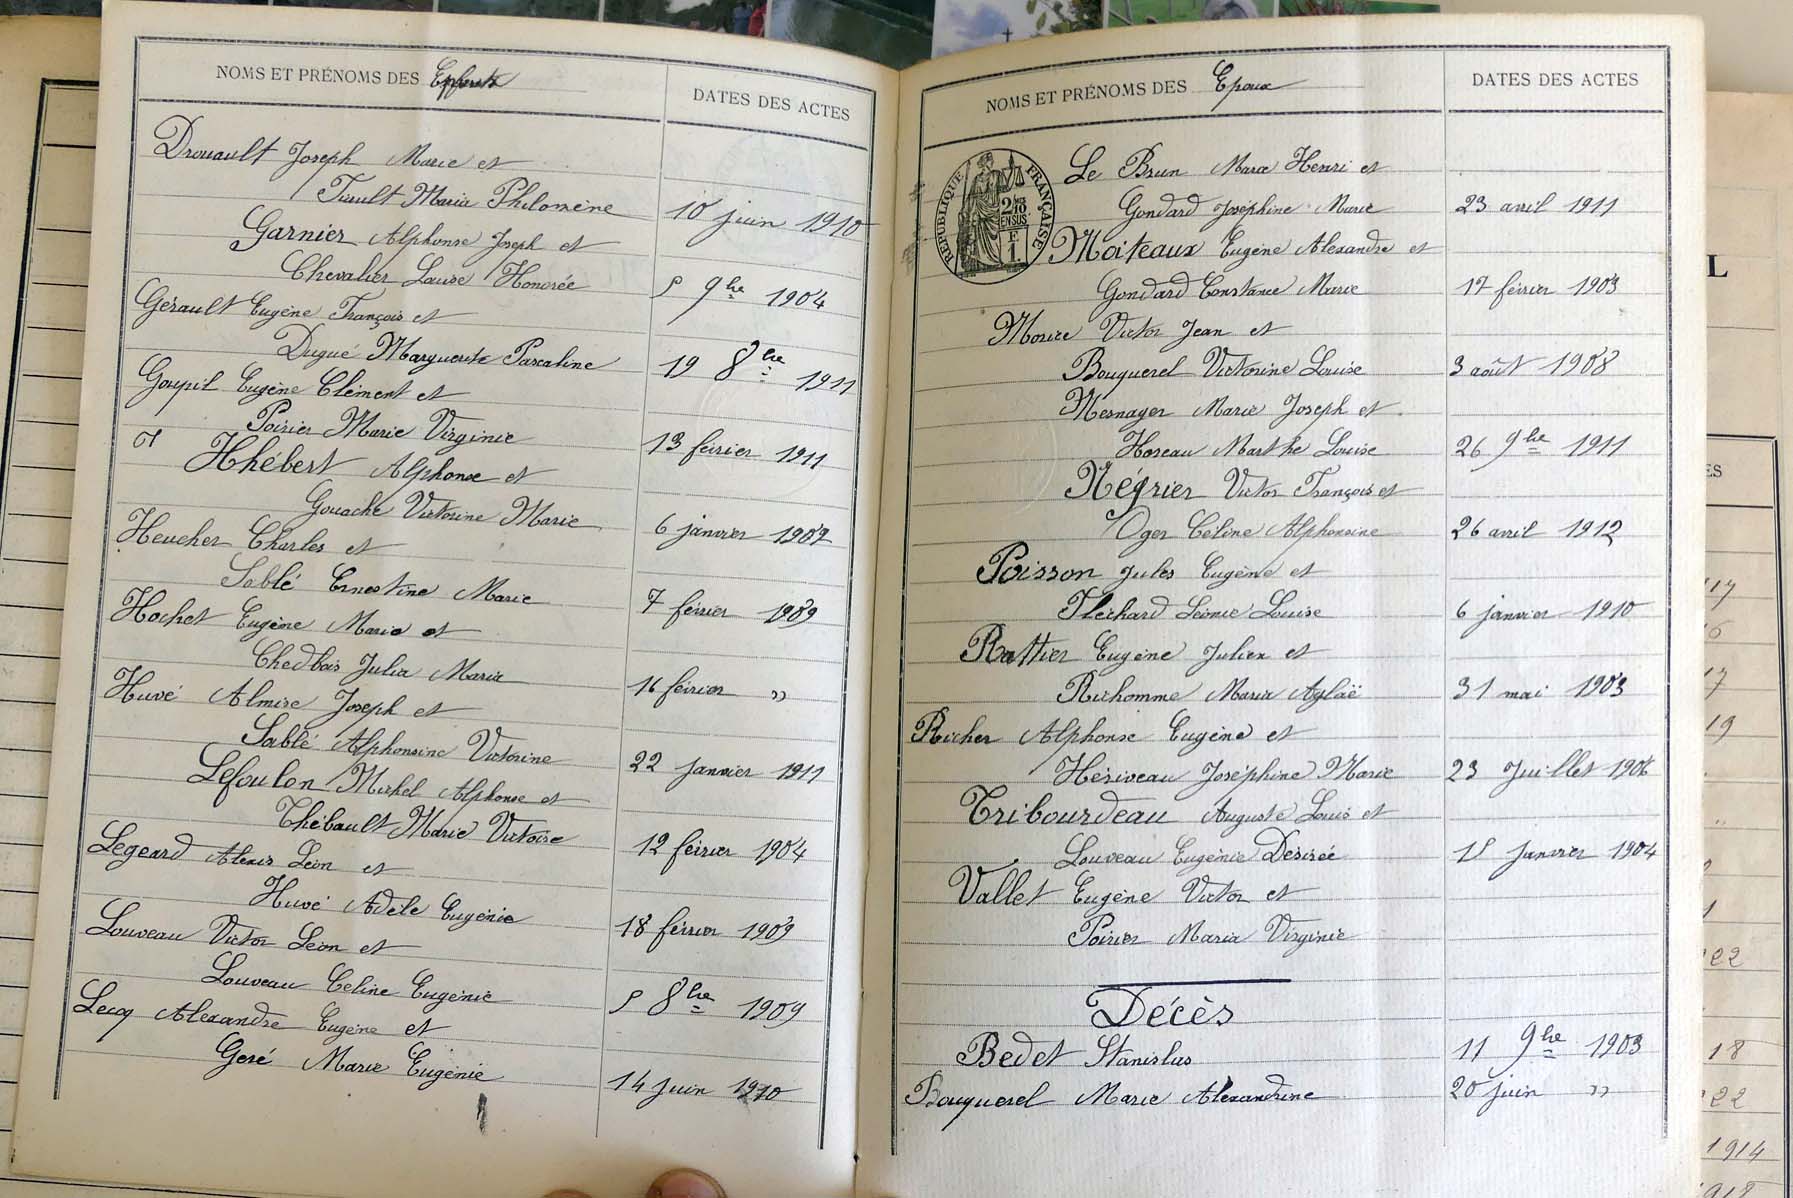 NOMS ET PRÉNOMS DES Epoux
DATES DES ACTES
Drouault Joseph Marie et
Tirault Maria Philomène 10 juin 1910
Garnier Alphonse Joseph et
Chevalier Louise Honorée 5 9bre 1904
Gérault Eugène François et
Dugué Marguerite Pascaline 19 8bre 1911
Goupil Eugène Clément et
Poirier Marie Virginie 13 février 1911
Hébert Alphonse et
Gouache Victorine Marie 6 janvier 1902
Heucher Charles et
Sablé Ernestine Marie 7 février 1909
Hochet Eugène Marie et
Chedbois Julia Maria 16 février "
Huvé Almire Joseph et
Sablé Alphonsine Victorine 22 janvier 1911
Lefoulon Michel Alphonse et
Thébault Marie Victoire 12 février 1904
Legeard Alexis Léon et
Huvé Adèle Eugénie 18 février 1909
Louveau Victor Léon et
Louveau Céline Eugénie 5 8bre 1909
Lecoq Alexandre Eugène et
Geré Marie Eugénie 14 juin 1910
NOMS ET PRÉNOMS DES Epoux
DATES DES ACTES
RÉPUBLIQUE FRANÇAISE
2/10
EN SUS
F
1.
Le Brun Marie Henri et
Gondard Joséphine Marie 23 avril 1911
Moiteaux Eugène Alexandre et
Gondard Constance Marie 17 février 1903
Morice Victor Jean et
Bouquerel Victorine Louise 3 août 1908
Mesnager Marie Joseph et
Horeau Marthe Louise 26 9bre 1911
Négrier Victor François et
Oger Céline Alphonsine 26 avril 1912
Poisson Jules Eugène et
Fléchard Léonie Louise 6 janvier 1910
Rattier Eugène Julien et
Richomme Maria Aglaë 31 mai 1903
Richer Alphonse Eugène et
Hériveau Joséphine Marie 23 Juillet 1906
Tribourdeau Auguste Louis et
Louveau Eugénie Désirée 15 janvier 1904
Vallet Eugène Victor et
Poirier Maria Virginie
Décès
Bedet Stanislas 11 9bre 1903
Bouquerel Marie Alexandrine 20 juin "
L
ES
17
17
19
22
18
22
1914